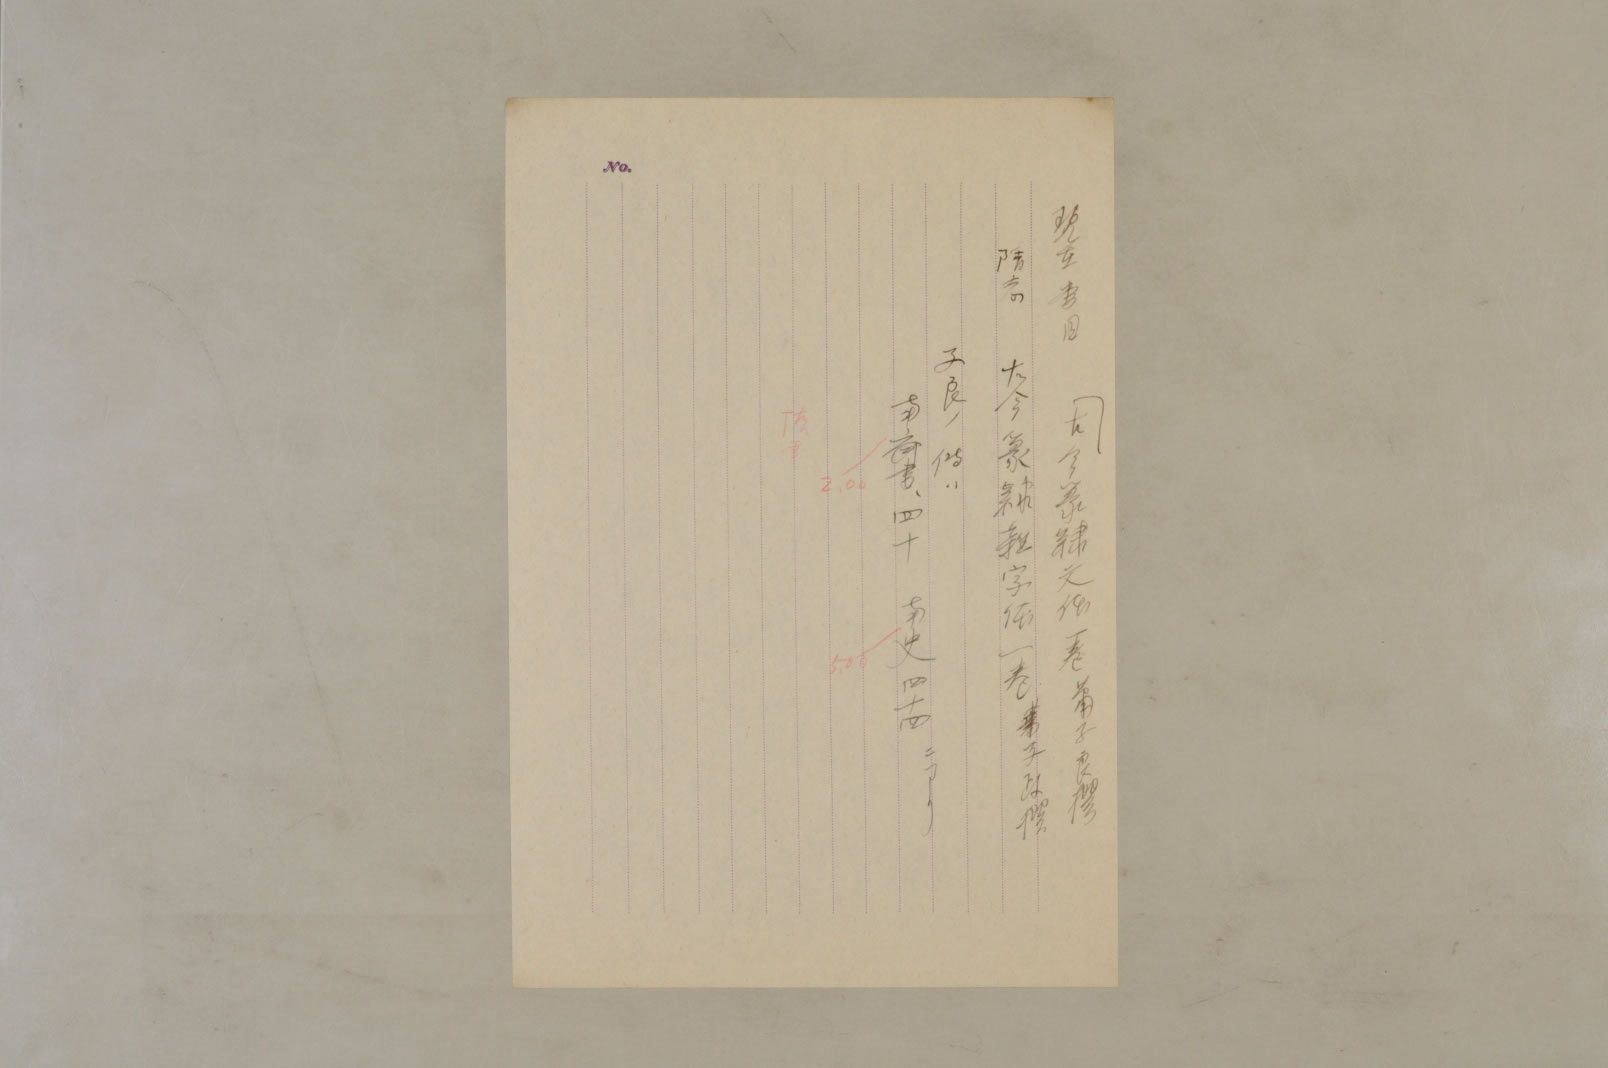 No.
現在書目 「古今篆隷文体一巻 蕭子良撰
隋志 古今篆隷雑字体一巻 蕭子政撰
子良ノ傳ハ
南斉書、四十 南史四十四 ニアリ
2,00
5,00